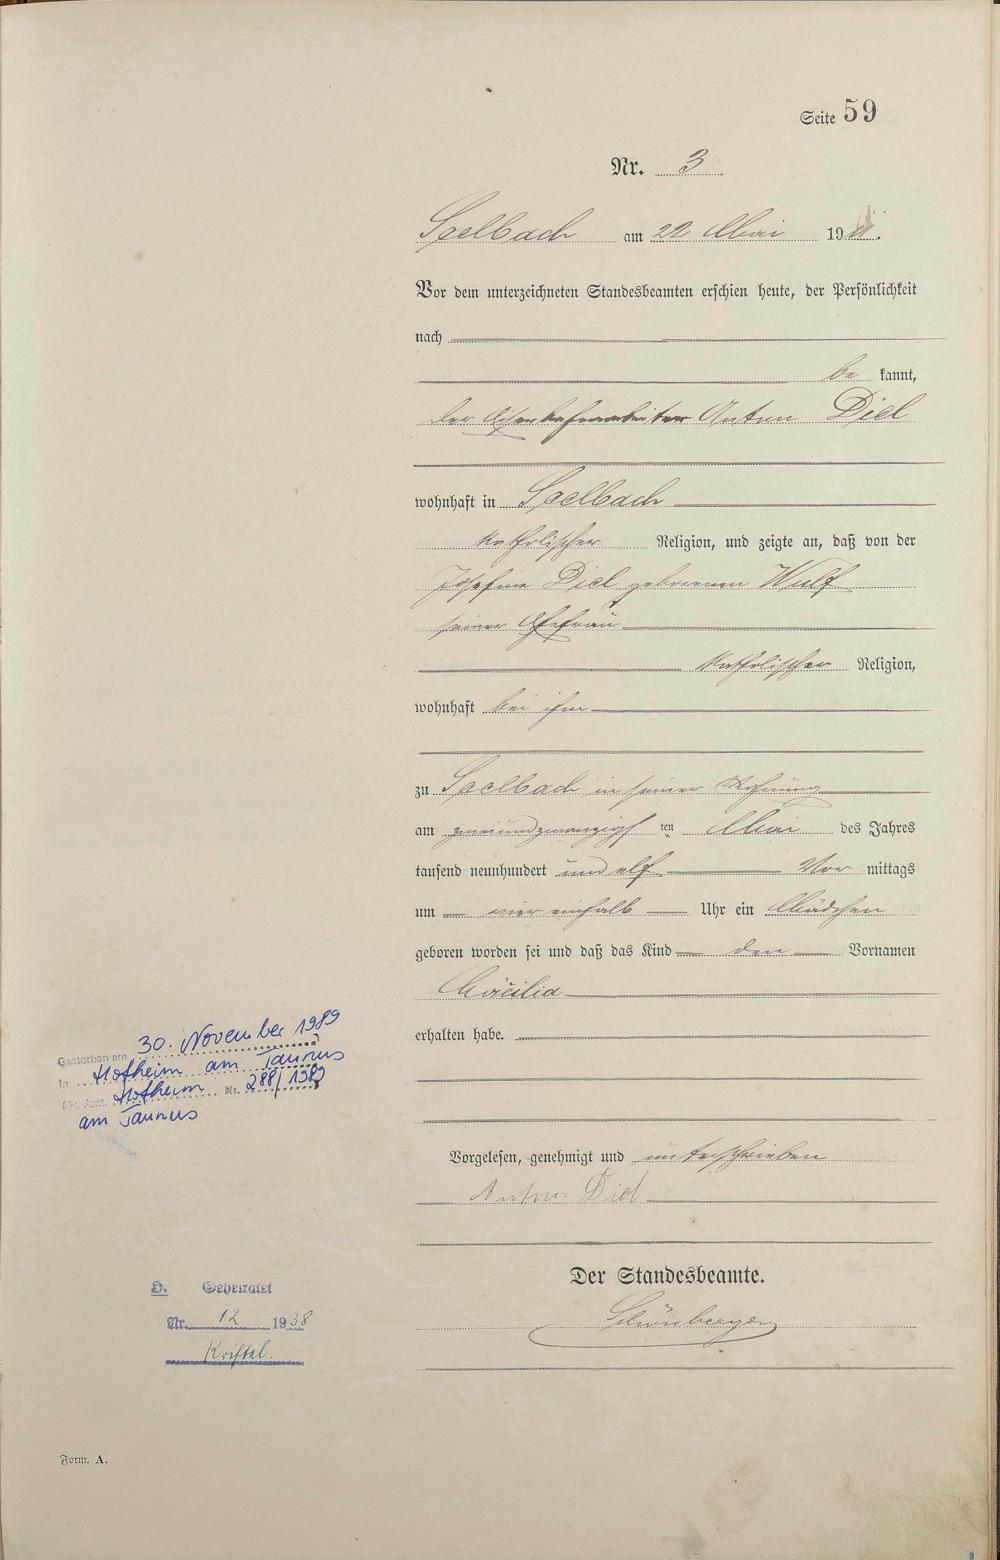 Seite 59
Nr. 3
Seelbach am 22 Mai 1911.
Vor dem unterzeichneten Standesbeamten erschien heute, der Persönlichkeit
nach
be kannt,
der Eisenbahnarbeiter Anton Diel
wohnhaft in Seelbach
katholischer Religion, und zeigte an, daß von der
Josefine Diel geborenen Wulf
seiner Ehefrau
katholischer Religion,
wohnhaft bei ihm
zu Seelbach in seiner Wohnung
am zweiundzwanzigsten Mai des Jahres
tausend neunhundert und elf Vor mittags
um vier einhalb Uhr ein Mädchen
geboren worden sei und daß das Kind den Vornamen
Cäcilia
erhalten habe.
Gestorben am 30. November 1989
in Hofheim am Taunus
St. Amt. Hofheim Nr. 288/1989
am Taunus
Vorgelesen, genehmigt und unterschrieben
Anton Diel
Der Standesbeamte.
Schönberger
Geheiratet
Nr. 12 1938
Kriftel.
Form. A.